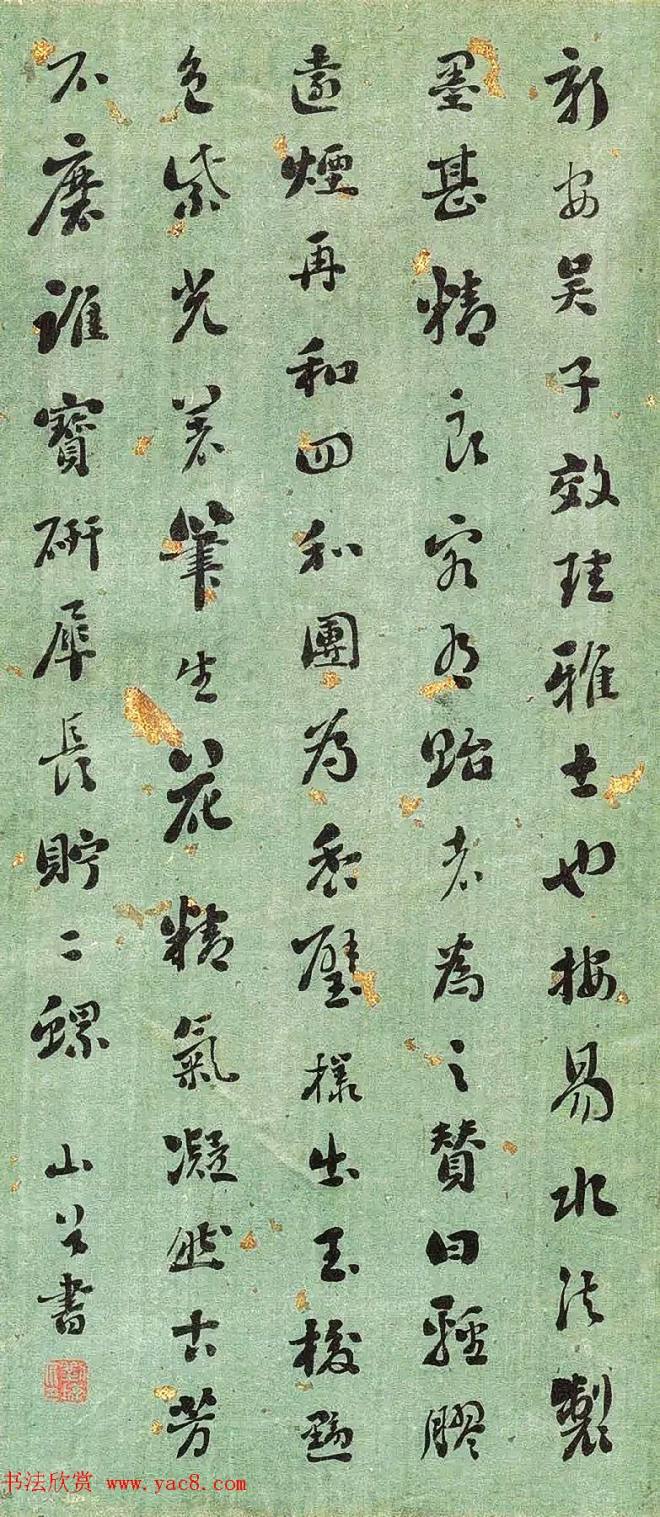 新安吴子效珪雅士也按易水法製
墨甚精良客有貽者為之贊曰輕膠
遠煙再和四和團為香璧樣出玉梭黝
色紫光若筆生花精氣凝然古芳
不磨誰寶研犀長貯二螺 山谷書
书法欣赏 www.yac8.com